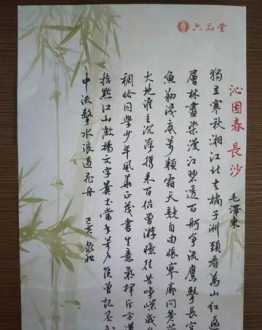 六品堂
沁园春 长沙
毛泽东
独立寒秋湘江北去橘子洲头看万山红遍
层林尽染漫江碧透百舸争流鹰击长空
鱼翔浅底万类霜天竞自由怅寥廓问苍茫
大地谁主沉浮携来百侣曾游忆往昔峥嵘岁
稠恰同学少年风华正茂书生意气挥斥方遒
指点江山激扬文字粪土当年万户侯曾记否到
中流击水浪遏飞舟